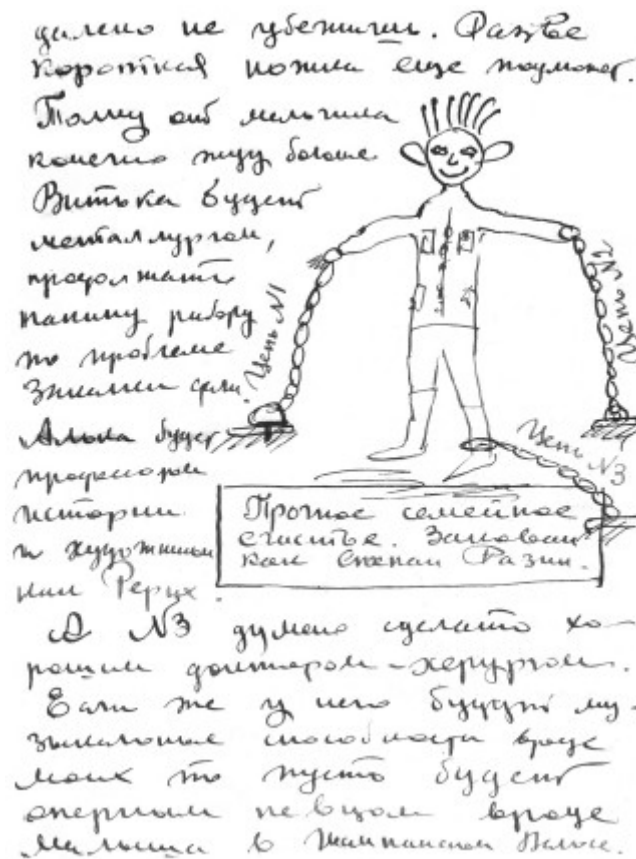 далеко не убежишь. Разве
короткая ножка еще поможет.
Толку от мальчика
конечно жду больше
Витька будет
металлургом,
продолжать
папину работу
по проблеме
закалки
Алька будет
профессором
истории
и художником
как Рерих.
Цепь №1
Цепь №2
Цепь №3
Прочное семейное
счастье. Закован
как Степан Разин.
А №3 думаю сделать хо-
рошим доктором-хирургом.
Если же у него будут му-
зыкальные способности вроде
моих то пусть будет
оперным певцом вроде
малыша в